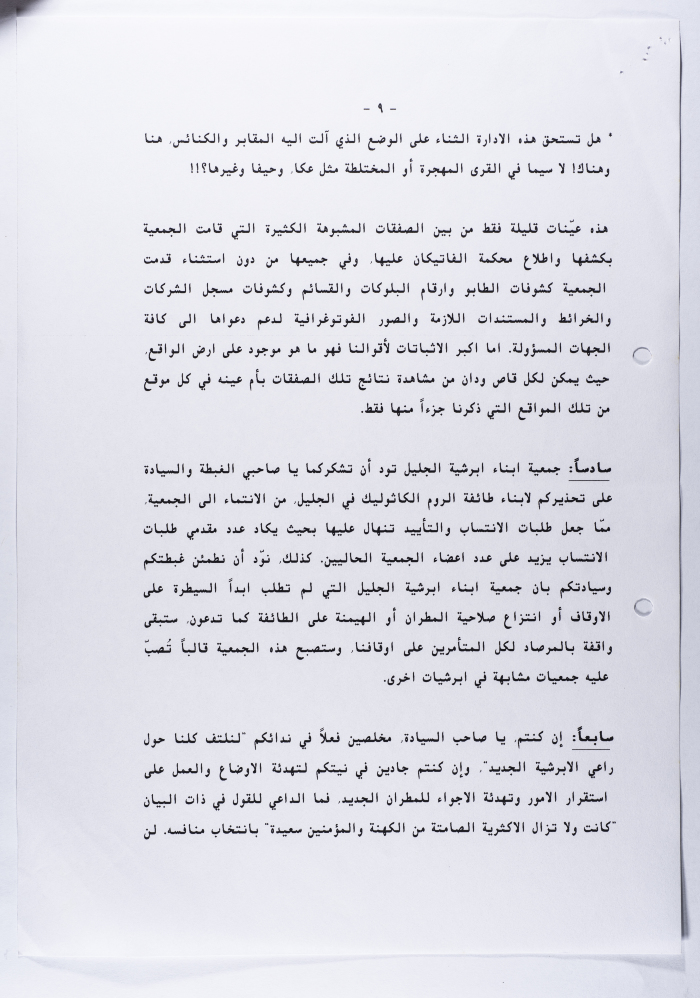 - ٩ -
* هل تستحق هذه الادارة الثناء على الوضع الذي آلت اليه المقابر والكنائس، هنا
وهناك! لا سيما في القرى المهجرة أو المختلطة مثل عكا، وحيفا وغيرها؟!!
هذه عيّنات قليلة فقط من بين الصفقات المشبوهة الكثيرة التي قامت الجمعية
بكشفها واطلاع محكمة الفاتيكان عليها، وفي جميعها من دون استثناء قدمت
الجمعية كشوفات الطابو وارقام البلوكات والقسائم وكشوفات مسجل الشركات
والخرائط والمستندات اللازمة والصور الفوتوغرافية لدعم دعواها الى كافة
الجهات المسؤولة. اما اكبر الاثباتات لأقوالنا فهو ما هو موجود على ارض الواقع،
حيث يمكن لكل قاص ودان من مشاهدة نتائج تلك الصفقات بأم عينه في كل موقع
من تلك المواقع التي ذكرنا جزءاً منها فقط.
سادساً: جمعية ابناء ابرشية الجليل تود أن تشكركما يا صاحبي الغبطة والسيادة
على تحذيركم لابناء طائفة الروم الكاثوليك في الجليل، من الانتماء الى الجمعية،
ممّا جعل طلبات الانتساب والتأييد تنهال عليها بحيث يكاد عدد مقدمي طلبات
الانتساب يزيد على عدد اعضاء الجمعية الحاليين. كذلك، نوّد أن نطمئن غبطتكم
وسيادتكم بان جمعية ابناء ابرشية الجليل التي لم تطلب ابداً السيطرة على
الاوقاف أو انتزاع صلاحية المطران أو الهيمنة على الطائفة كما تدعون، ستبقى
واقفة بالمرصاد لكل المتأمرين على اوقافنا، وستصبح هذه الجمعية قالباً تُصبّ
عليه جمعيات مشابهة في ابرشيات اخرى.
سابعاً: إن كنتم، يا صاحب السيادة، مخلصين فعلاً في ندائكم "لنلتف كلنا حول
راعي الابرشية الجديد"، وإن كنتم جادين في نيتكم لتهدئة الاوضاع والعمل على
استقرار الامور وتهدئة الاجواء للمطران الجديد، فما الداعي للقول في ذات البيان
"كانت ولا تزال الاكثرية الصامتة من الكهنة والمؤمنين سعيدة" بانتخاب منافسه. لن